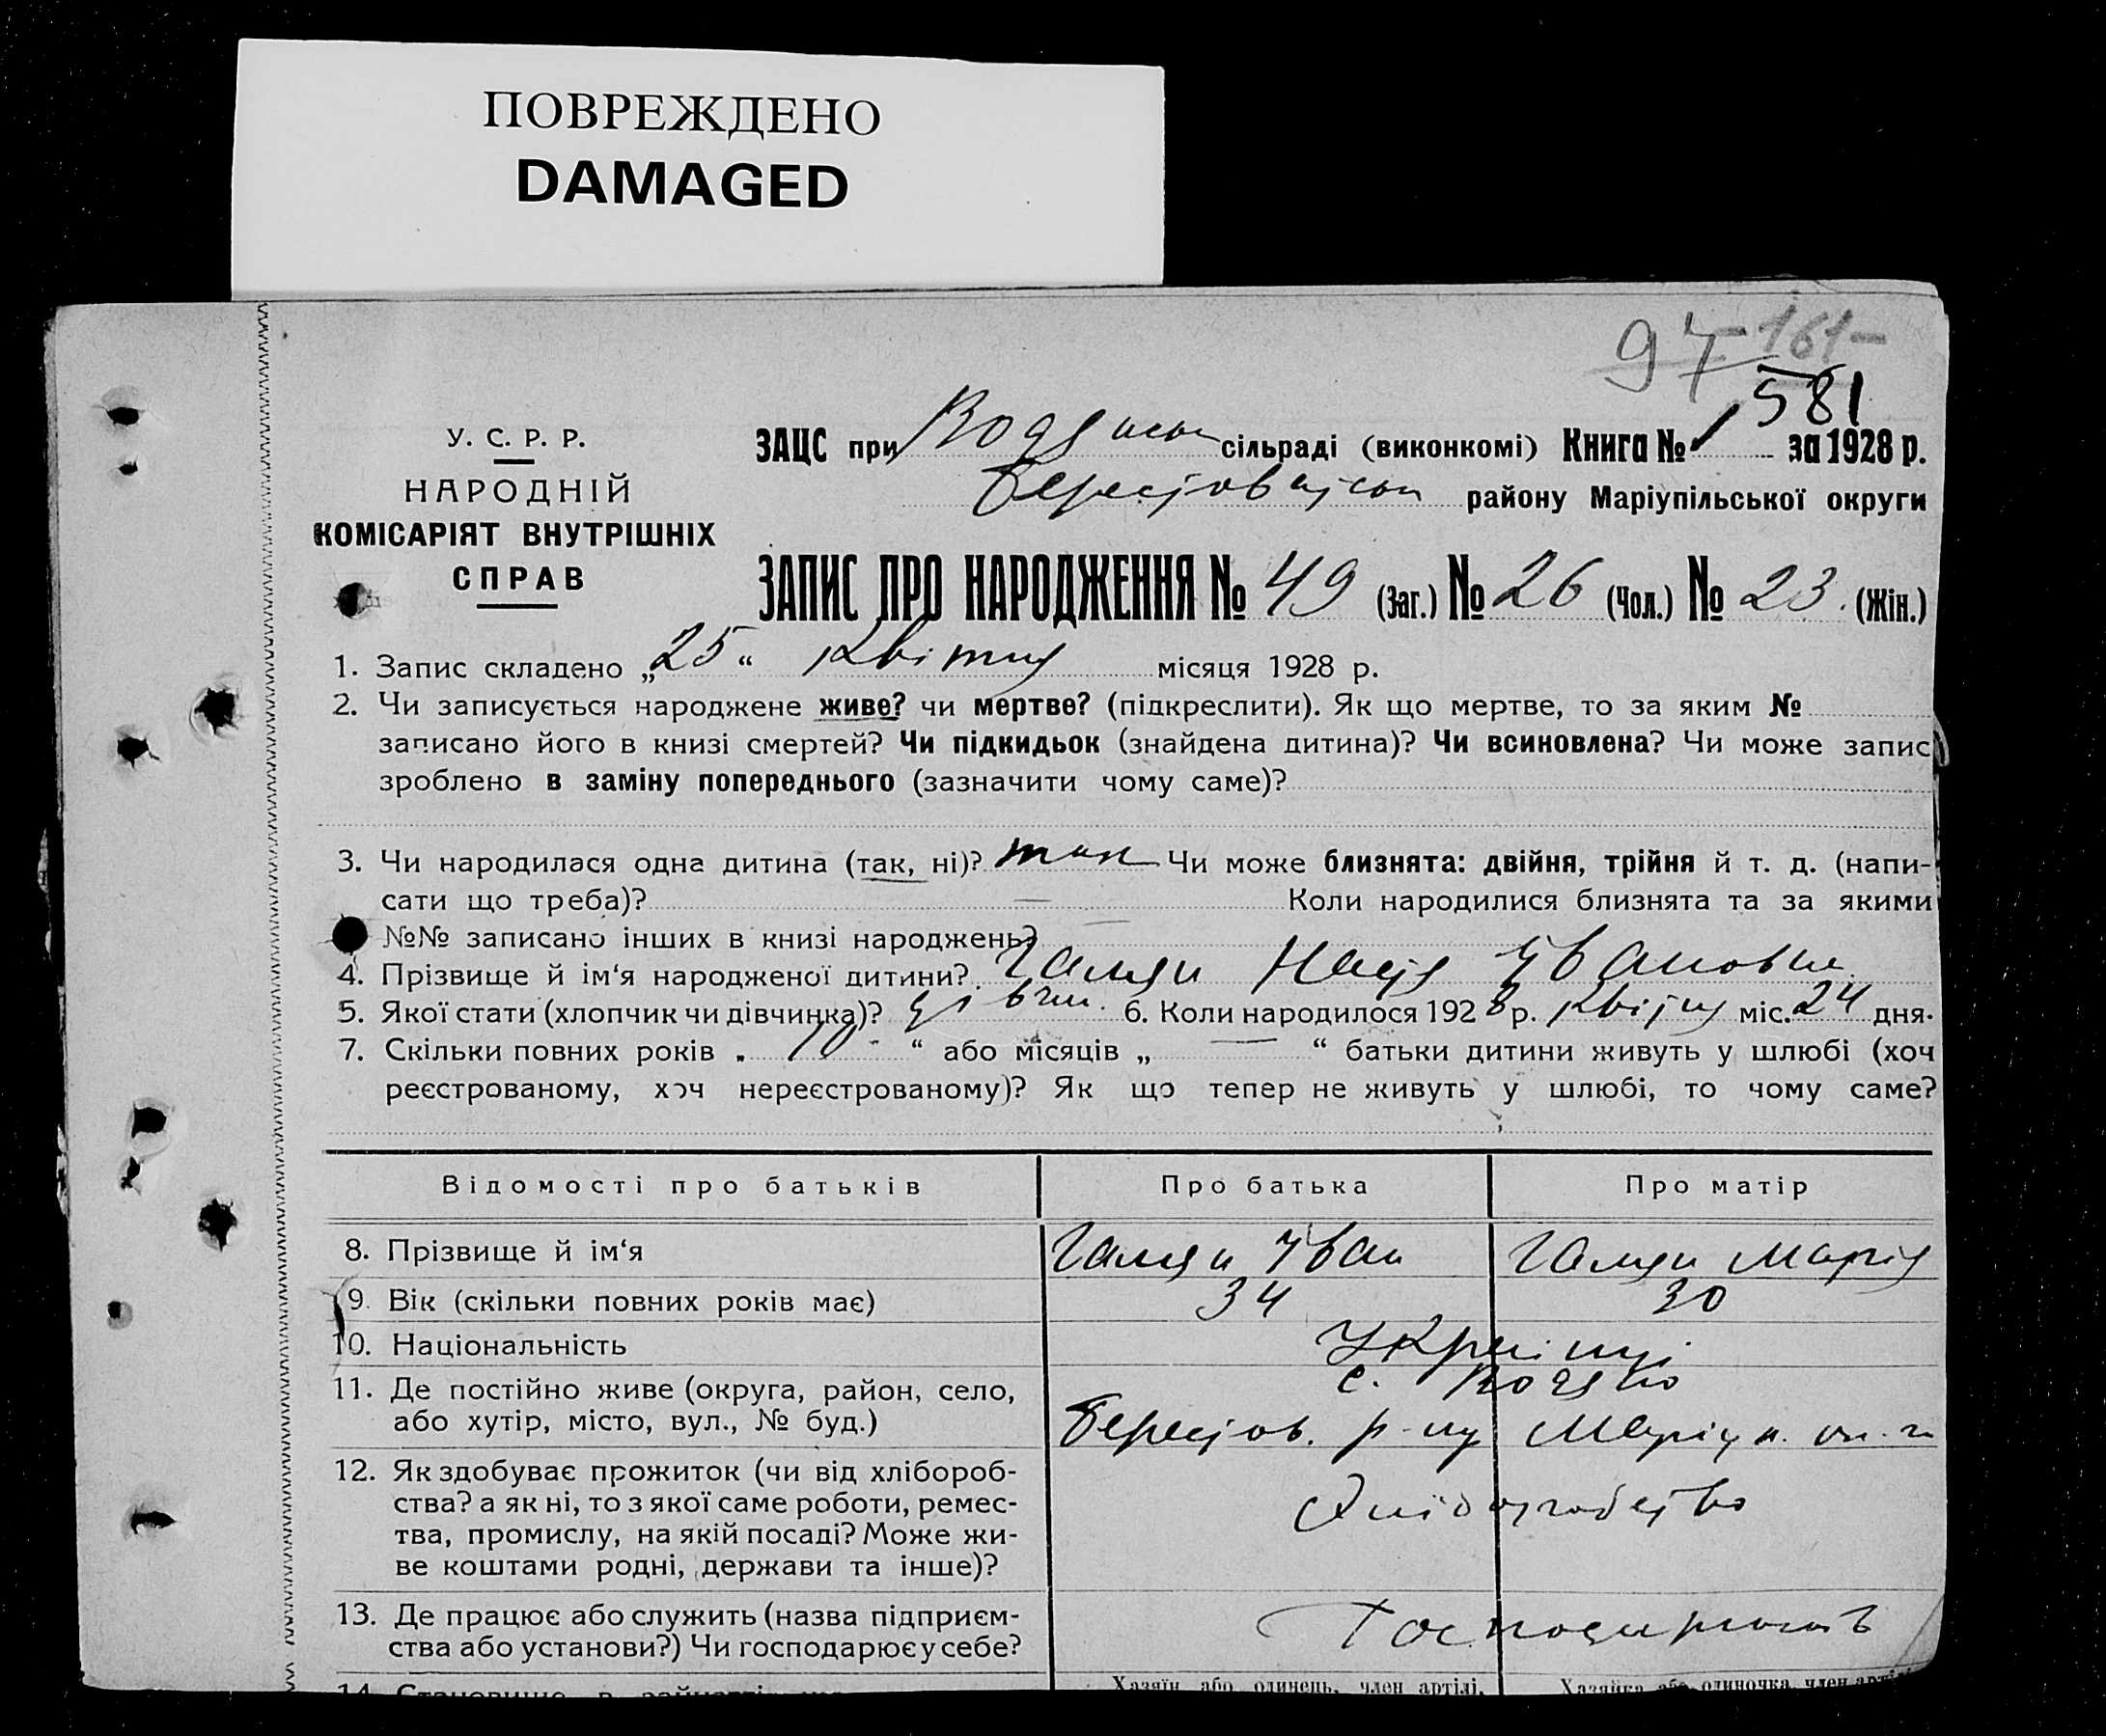 ПОВРЕЖДЕНО
DAMAGED
97 -161-
581
У. С. Р. Р.
НАРОДНІЙ
КОМІСАРІЯТ ВНУТРІШНІХ
СПРАВ
ЗАЦС при сільраді (виконкомі) Книга № 1 за 1928 р.
району Маріупільської округи
ЗАПИС ПРО НАРОДЖЕННЯ № 49 (Заг.) № 26 (Чол.) № 23. (Жін.)
1. Запис складено „25“ квітня місяця 1928 р.
2. Чи записується народжене живе? чи мертве? (підкреслити). Як що мертве, то за яким №
записано його в книзі смертей? Чи підкидьок (знайдена дитина)? Чи всиновлена? Чи може запис
зроблено в заміну попереднього (зазначити чому саме)?
3. Чи народилася одна дитина (так, ні)? так Чи може близнята: двійня, трійня й т. д. (напи-
сати що треба)? — Коли народилися близнята та за якими
№№ записано інших в книзі народжень?
4. Прізвище й ім‘я народженої дитини? Івановна
5. Якої стати (хлопчик чи дівчинка)? дівчин. 6. Коли народилося 1928 р. квітня міс. 24 дня.
7. Скільки повних років „ 10 “ або місяців „ — “ батьки дитини живуть у шлюбі (хоч
реєстрованому, хоч нереєстрованому)? Як що тепер не живуть у шлюбі, то чому саме?
Відомості про батьків Про батька Про матір
8. Прізвище й ім‘я Іван Марія
9. Вік (скільки повних років має) 34 30
10. Національність Україн
11. Де постійно живе (округа, район, село, с. Водяно
або хутір, місто, вул., № буд.) Берестов. р-ну Маріуп. ок-ги
12. Як здобуває прожиток (чи від хлібороб- Хліборобство
ства? а як ні, то з якої саме роботи, ремес-
тва, промислу, на якій посаді? Може жи-
ве коштами родні, держави та інше)?
13. Де працює або служить (назва підприєм-
ства або установи?) Чи господарює у себе?
14. Становище в
Хазяїн або одинець, член артілі,
Хазяйка або одиночка, член артілі